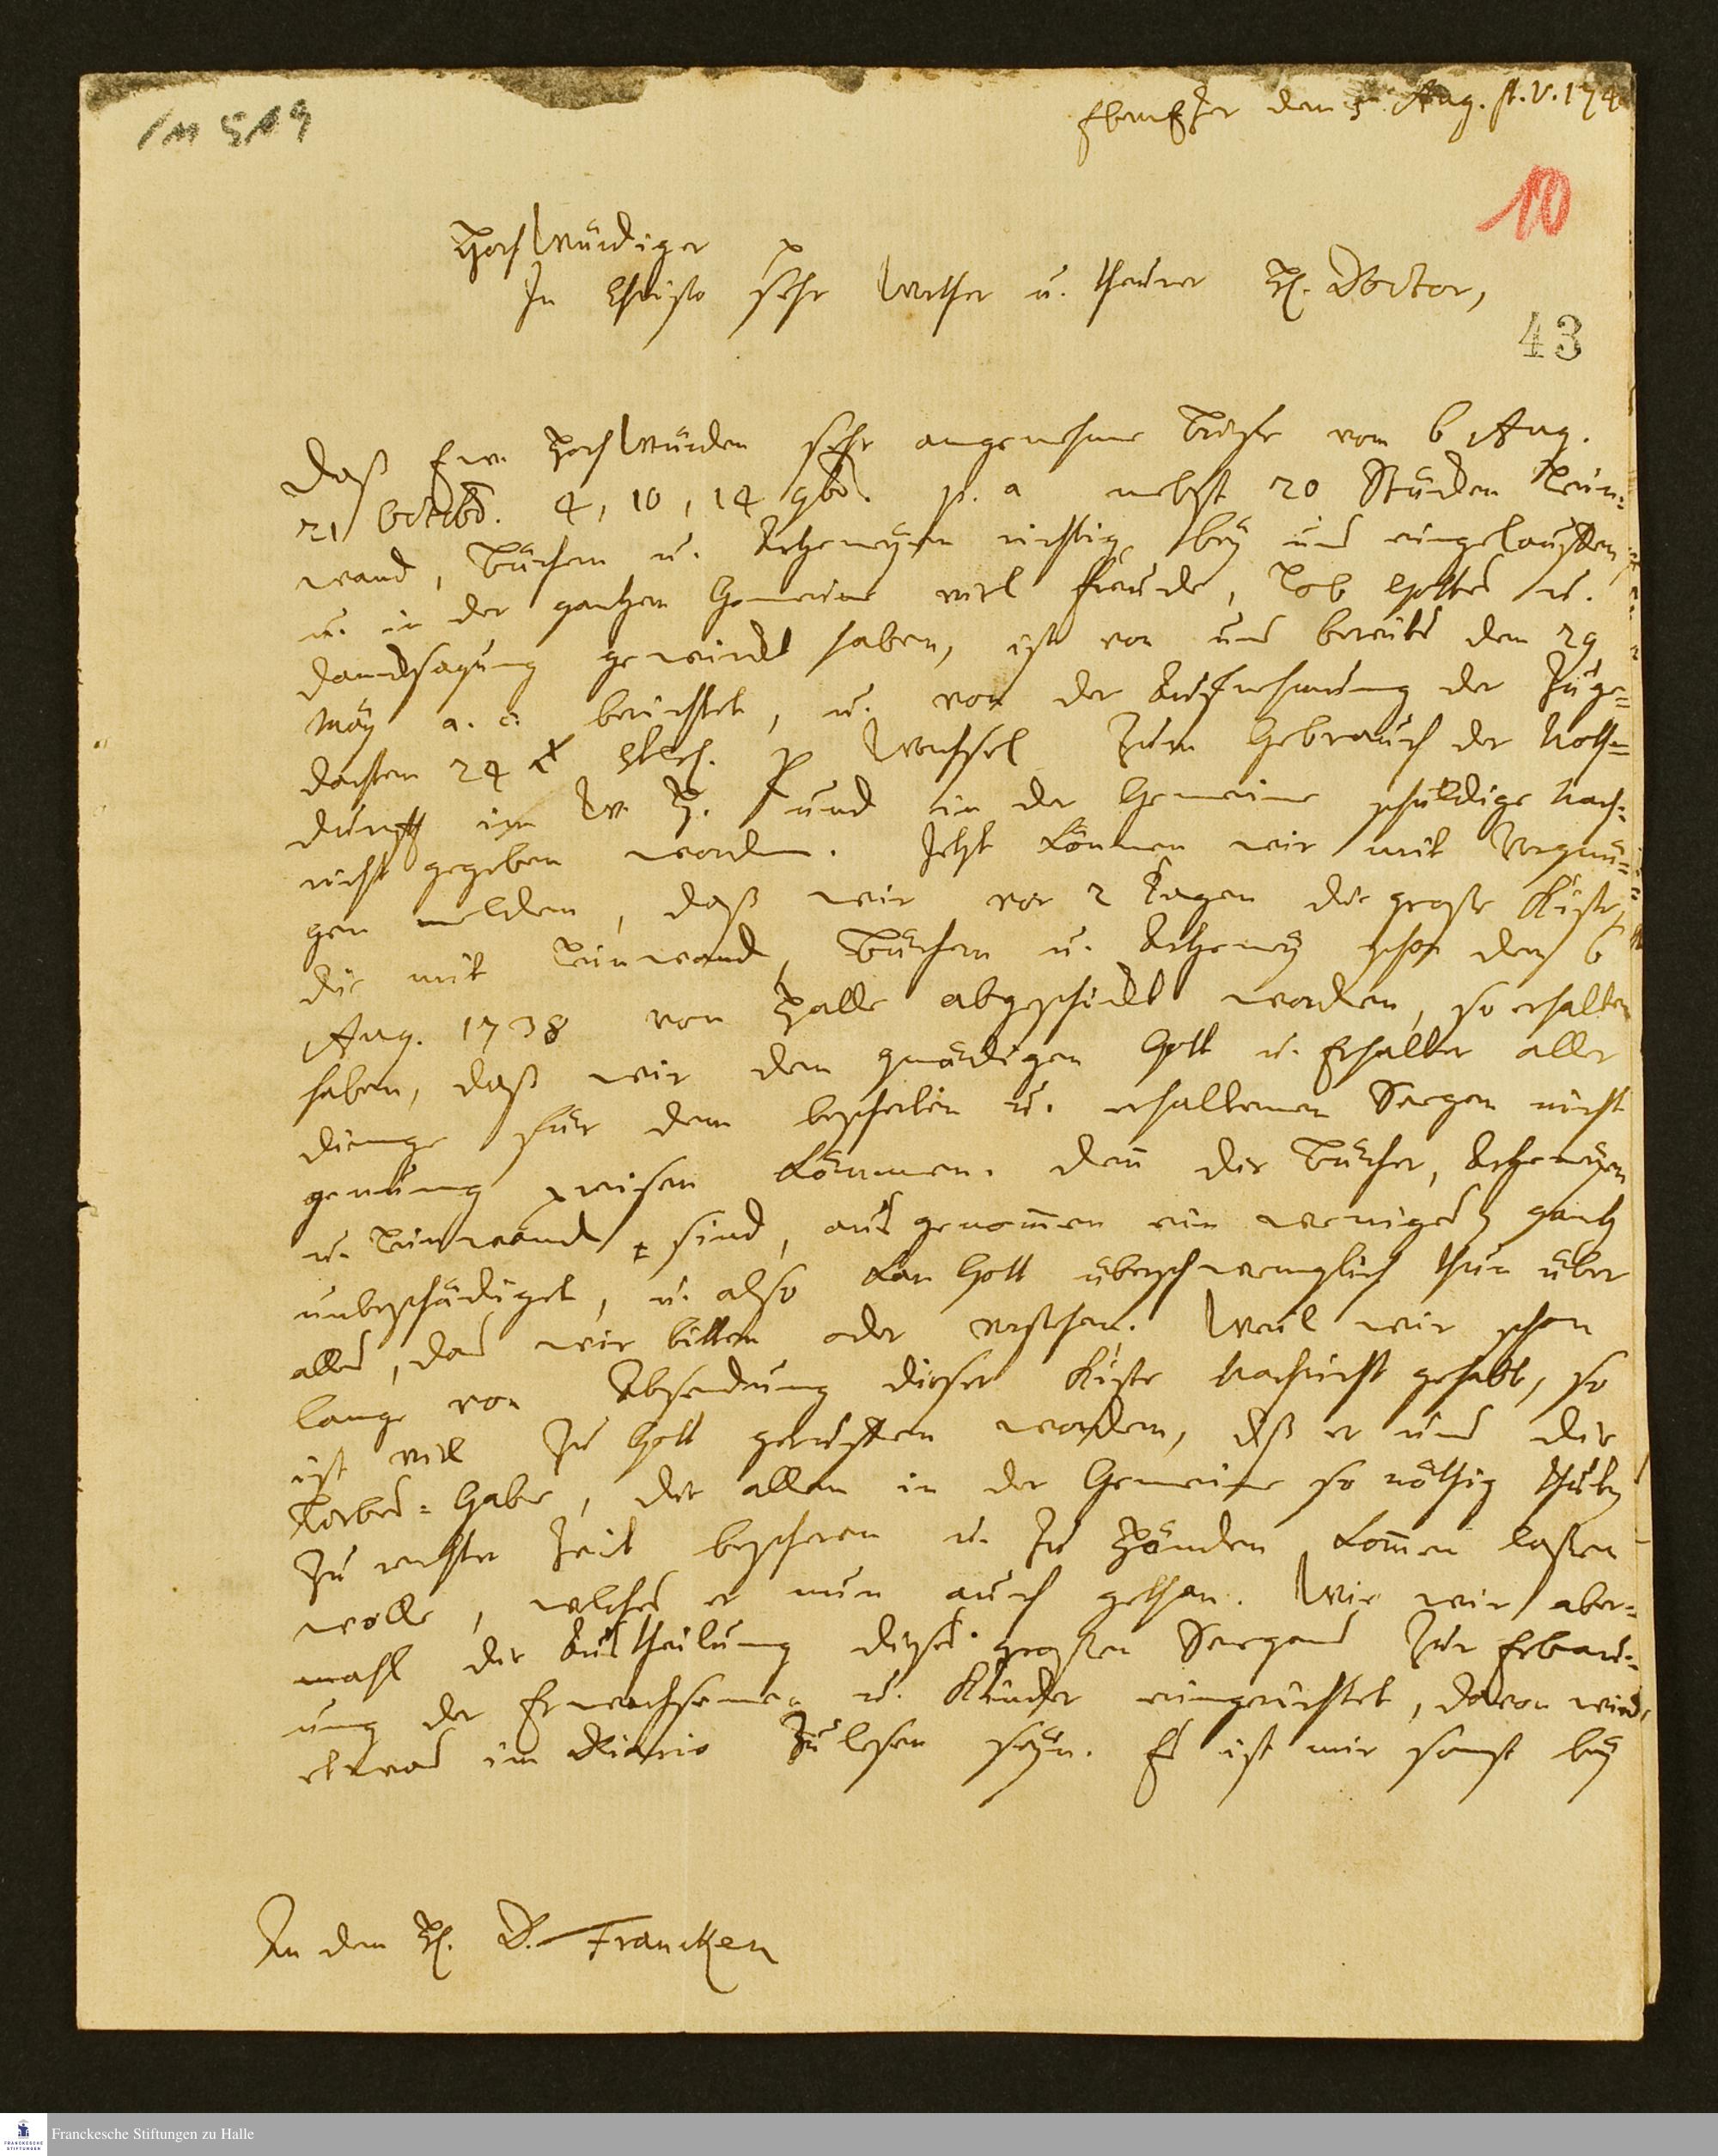 1M 5A9
EbenEzer den 5. Aug. st. v. 174
10
HochWürdiger
In Christo sehr Werther u. theurer H. Doctor,
43
Daß Ew. HochWürden sehr angenehme Briefe vom 6 Aug.
21 Octobr. 4, 10, 14 9br. p. a nebst 20 Stücken Lein-
wand, Büchern u. Artzeneyen richtig bey uns eingelauffen
u. in der gantzen Gemeine viel Freude, Lob Gottes u.
Dancksagung gewirckt haben, ist von uns bereits den 29
May a. c. berichtet, u. von der Aufnehmung der zuge-
dachten 24 £ Sterl. p Wechsel zum Gebrauch der Noth-
durfft im W. H. und in der Gemeine schuldige Nach-
richt gegeben worden. Jetzt können wir mit Vergnü-
gen melden, daß wir vor 2 Tagen die große Kiste,
die mit Leinwand, Büchern u. Artzeney schon den 6
Aug. 1738 von Halle abgeschickt worden, so erhalten
haben, daß wir dem gnädigen Gott u. Erhalter aller
Dinge für den bescherten u. erhaltenen Seegen nicht
genung preisen können. Denn die Bücher, Artzeneyen
u. Leinwand sind, ausgenommen ein weniges, gantz
unbeschädiget, u. also kan Gott überschwenglich thun über
alles, das wir bitten oder verstehen. Weil wir schon
lange von Absendung dieser Kiste Nachricht gehabt, so
ist viel zu Gott geruffen worden, dß er uns die
Liebes-Gabe, die allen in der Gemeine so nöthig thut,
zu rechter Zeit bescheren u. zu Händen kommen laßen
wolle, welches er nun auch gethan. Wie wir aber-
mahl die Austheilung dieses großen Seegens zur Erbau-
ung der Erwachsenen u. Kinder eingerichtet, davon wird
etwas im Diario zu lesen seyn. Es ist mir sonst bey
An den H. D. Francken
Franckesche Stiftungen zu Halle
FRANCKESCHE
STIFTUNGEN